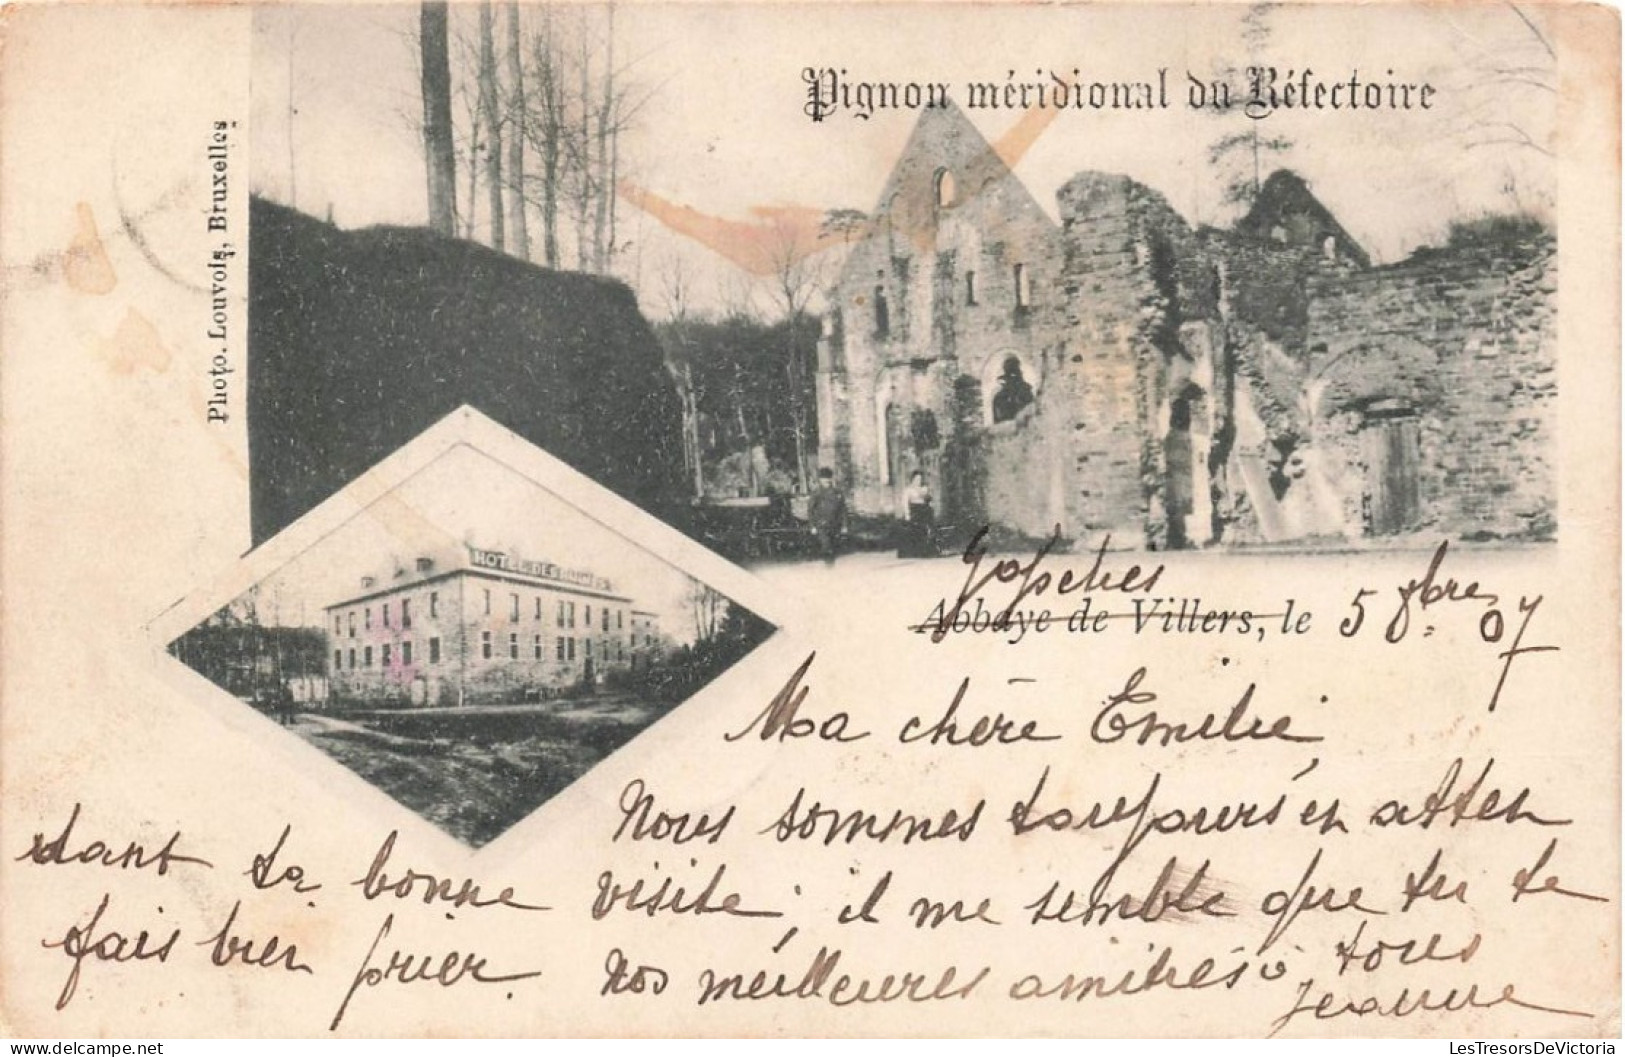 Pignon méridional du Réfectoire
Photo. Louvois, Bruxelles
HOTEL DES RUINES
Abbaye de Villers, le 5 8bre 07
Ma chère Emilie
Nous sommes toujours en atten
dant ta bonne visite, il me semble que tu te
fais bien prier. Nos meilleures amitiés à tous
Jeanne
LesTresorsDeVictoria